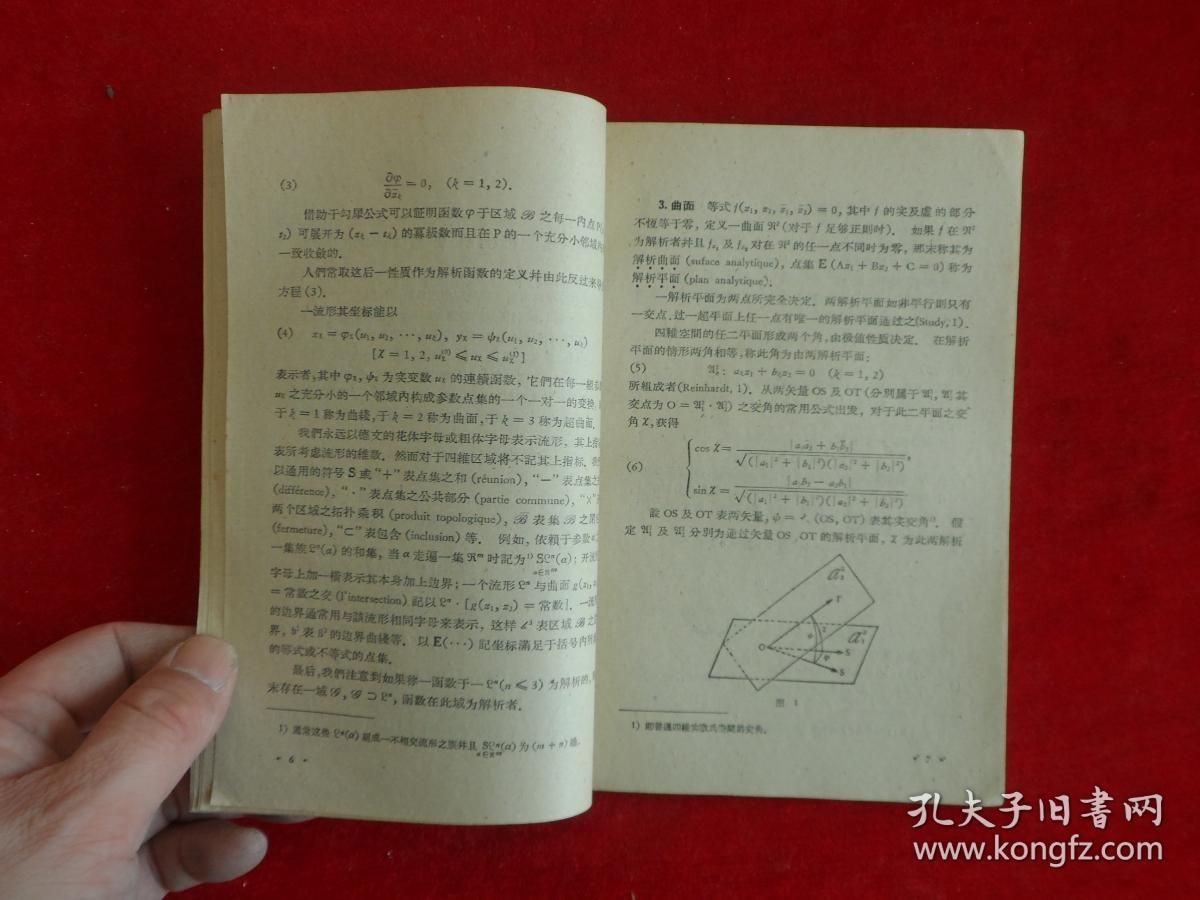 (3) ∂φ/∂z̄ₖ = 0, (k = 1, 2).
借助于勾犀公式可以証明函数φ于区域 ℬ 之每一内点P(
z₂) 可展开为 (zₖ − tₖ) 的冪級数而且在 P 的一个充分小邻域
一致收斂的.
人們常取这后一性质作为解析函数的定义并由此反过来
方程 (3).
一流形其坐标能以
(4) xχ = φχ(u₁, u₂, ···, uₖ), yχ = ψχ(u₁, u₂, ···, uₖ)
表示者, 其中 φχ, ψχ 为实变数 uₖ 的連續函数, 它們在每一
uₖ 之充分小的一个邻域内构成参数点集的一个一对一的变换,
于 k = 1 称为曲綫, 于 k = 2 称为曲面, 于 k = 3 称为超曲面.
我們永远以德文的花体字母或粗体字母表示流形, 其上指
表所考虑流形的維数. 然而对于四維区域将不記其上指标.
以通用的符号 S 或“+”表点集之和 (réunion), “−”表点集之
(différence), “·”表点集之公共部分 (partie commune), “×”
两个区域之拓扑乘积 (produit topologique), ℬ̄ 表集 ℬ 之
(fermeture), “⊂”表包含 (inclusion) 等. 例如, 依賴于参数
一集族 𝔏ⁿ(α) 的和集, 当 α 走遍一集 𝔎ᵐ 时記为¹⁾ S𝔏ⁿ(α);
字母上加一横表示其本身加上边界; 一个流形 𝔏ⁿ 与曲面 g(z₁, z₂)
= 常数之交 (l'intersection) 記以 𝔏ⁿ · [g(z₁, z₂) = 常数].
的边界通常用与該流形相同字母来表示, 这样 𝓁³ 表区域 ℬ 之
界, 𝔟¹ 表 𝔅² 的边界曲綫等. 以 E(···) 記坐标滿足于括号内
的等式或不等式的点集.
最后, 我們注意到如果称一函数于一 𝔏ⁿ (n ⩽ 3) 为解析的,
末存在一域 𝒢, 𝒢 ⊃ 𝔏ⁿ, 函数在此域为解析者.
1) 通常这些 𝔏ⁿ(α) 組成一不相交流形之族并且 S𝔏ⁿ(α) 为 (m + n) 維.
• 6 •
3. 曲面 等式 f(z₁, z₂, z̄₁, z̄₂) = 0, 其中 f 的实及虛的部分
不恆等于零, 定义一曲面 𝔄² (对于 f 足够正则时). 如果 f 在 𝔄²
为解析者并且 f_z₁ 及 f_z₂ 对在 𝔄² 的任一点不同时为零, 那末称其为
解析曲面 (suface analytique), 点集 E (Az₁ + Bz₂ + C = 0) 称为
解析平面 (plan analytique).
一解析平面为两点所完全决定. 两解析平面如非平行則只有
一交点. 过一超平面上任一点有唯一的解析平面通过之(Study, 1).
四維空間的任二平面形成两个角, 由极值性质决定. 在解析
平面的情形两角相等, 称此角为由两解析平面:
(5) 𝔄²ₖ: aₖz₁ + bₖz₂ = 0 (k = 1, 2)
所組成者 (Reinhardt, 1). 从两矢量 OS 及 OT (分别属于 𝔄²₁, 𝔄²₂ 其
交点为 O = 𝔄²₁ · 𝔄²₂) 之交角的常用公式出发, 对于此二平面之交
角 χ, 获得
(6) cos χ = |a₁ā₂ + b₁b̄₂| / √(|a₁|² + |b₁|²)(|a₂|² + |b₂|²),
sin χ = |a₁b₂ − a₂b₁| / √(|a₁|² + |b₁|²)(|a₂|² + |b₂|²).
設 OS 及 OT 表两矢量, ψ = ∠ (OS, OT) 表其实交角¹⁾. 假
定 𝔄²₁ 及 𝔄²₂ 分别为通过矢量 OS, OT 的解析平面, χ 为此两解析
T
O
S
S
图 1
1) 即普通四維实歐氏空間的交角.
• 7 •
孔夫子旧書网
www.kongfz.com